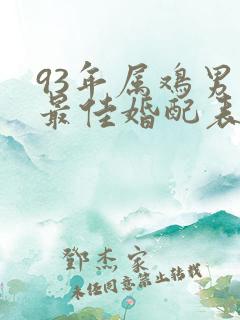 93年属鸡男
最佳婚配表
鄧杰家
未经同意禁止转载